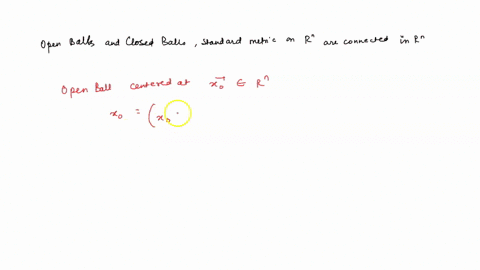 Open Balls and Closed Balls, standard metric on Rⁿ are connected in Rⁿ
Open Ball centered at x₀⃗ ∈ Rⁿ
x₀ = (x₀